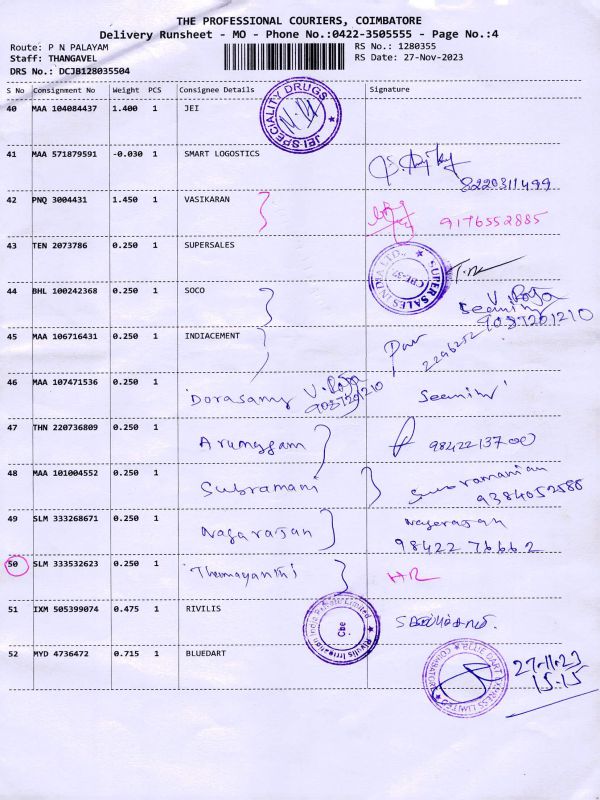 THE PROFESSIONAL COURIERS, COIMBATORE
Delivery Runsheet - MO - Phone No.:0422-3505555 - Page No.:4
Route: P N PALAYAM
Staff: THANGAVEL
DRS No.: DCJB128035504
RS No.: 1280355
RS Date: 27-Nov-2023
S No Consignment No Weight PCS Consignee Details Signature
40 MAA 104084437 1.400 1 JEI
JEI SPECIALITY DRUGS
41 MAA 571879591 -0.030 1 SMART LOGOSTICS
8220311499
42 PNQ 3004431 1.450 1 VASIKARAN 9176552885
43 TEN 2073786 0.250 1 SUPERSALES
SUPER SALES INDIA LTD.
44 BHL 100242368 0.250 1 SOCO
V. Roja
9037201210
45 MAA 106716431 0.250 1 INDIACEMENT
46 MAA 107471536 0.250 1 Dorasamy V. Roja
9037201210
47 THN 220736809 0.250 1 Arumuggam 9842213700
48 MAA 101004552 0.250 1 Subramani Subramanian
9384052588
49 SLM 333268671 0.250 1 Nagarajan Nagerajan
98422 76662
50 SLM 333532623 0.250 1 Thamayanthi HR
51 IXM 505399074 0.475 1 RIVILIS
Rivulis Irrigation India Private Limited
Cbe
52 MYD 4736472 0.715 1 BLUEDART
BLUE DART EXPRESS LIMITED
COIMBATORE
27-11-23
15:15